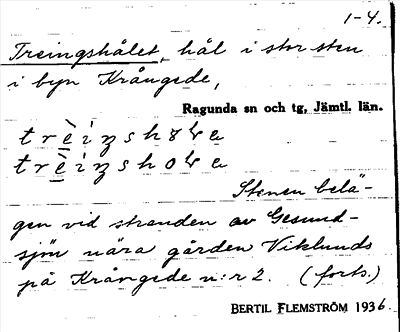 1-4.
Treingshålet, hål i stor sten
i byn Krångede,
Ragunda sn och tg, Jämtl. län.
Stenen belä-
gen vid stranden av Gesund-
sjön nära gården Viklunds
på Krångede n:r 2. (forts.)
BERTIL FLEMSTRÖM 1936.